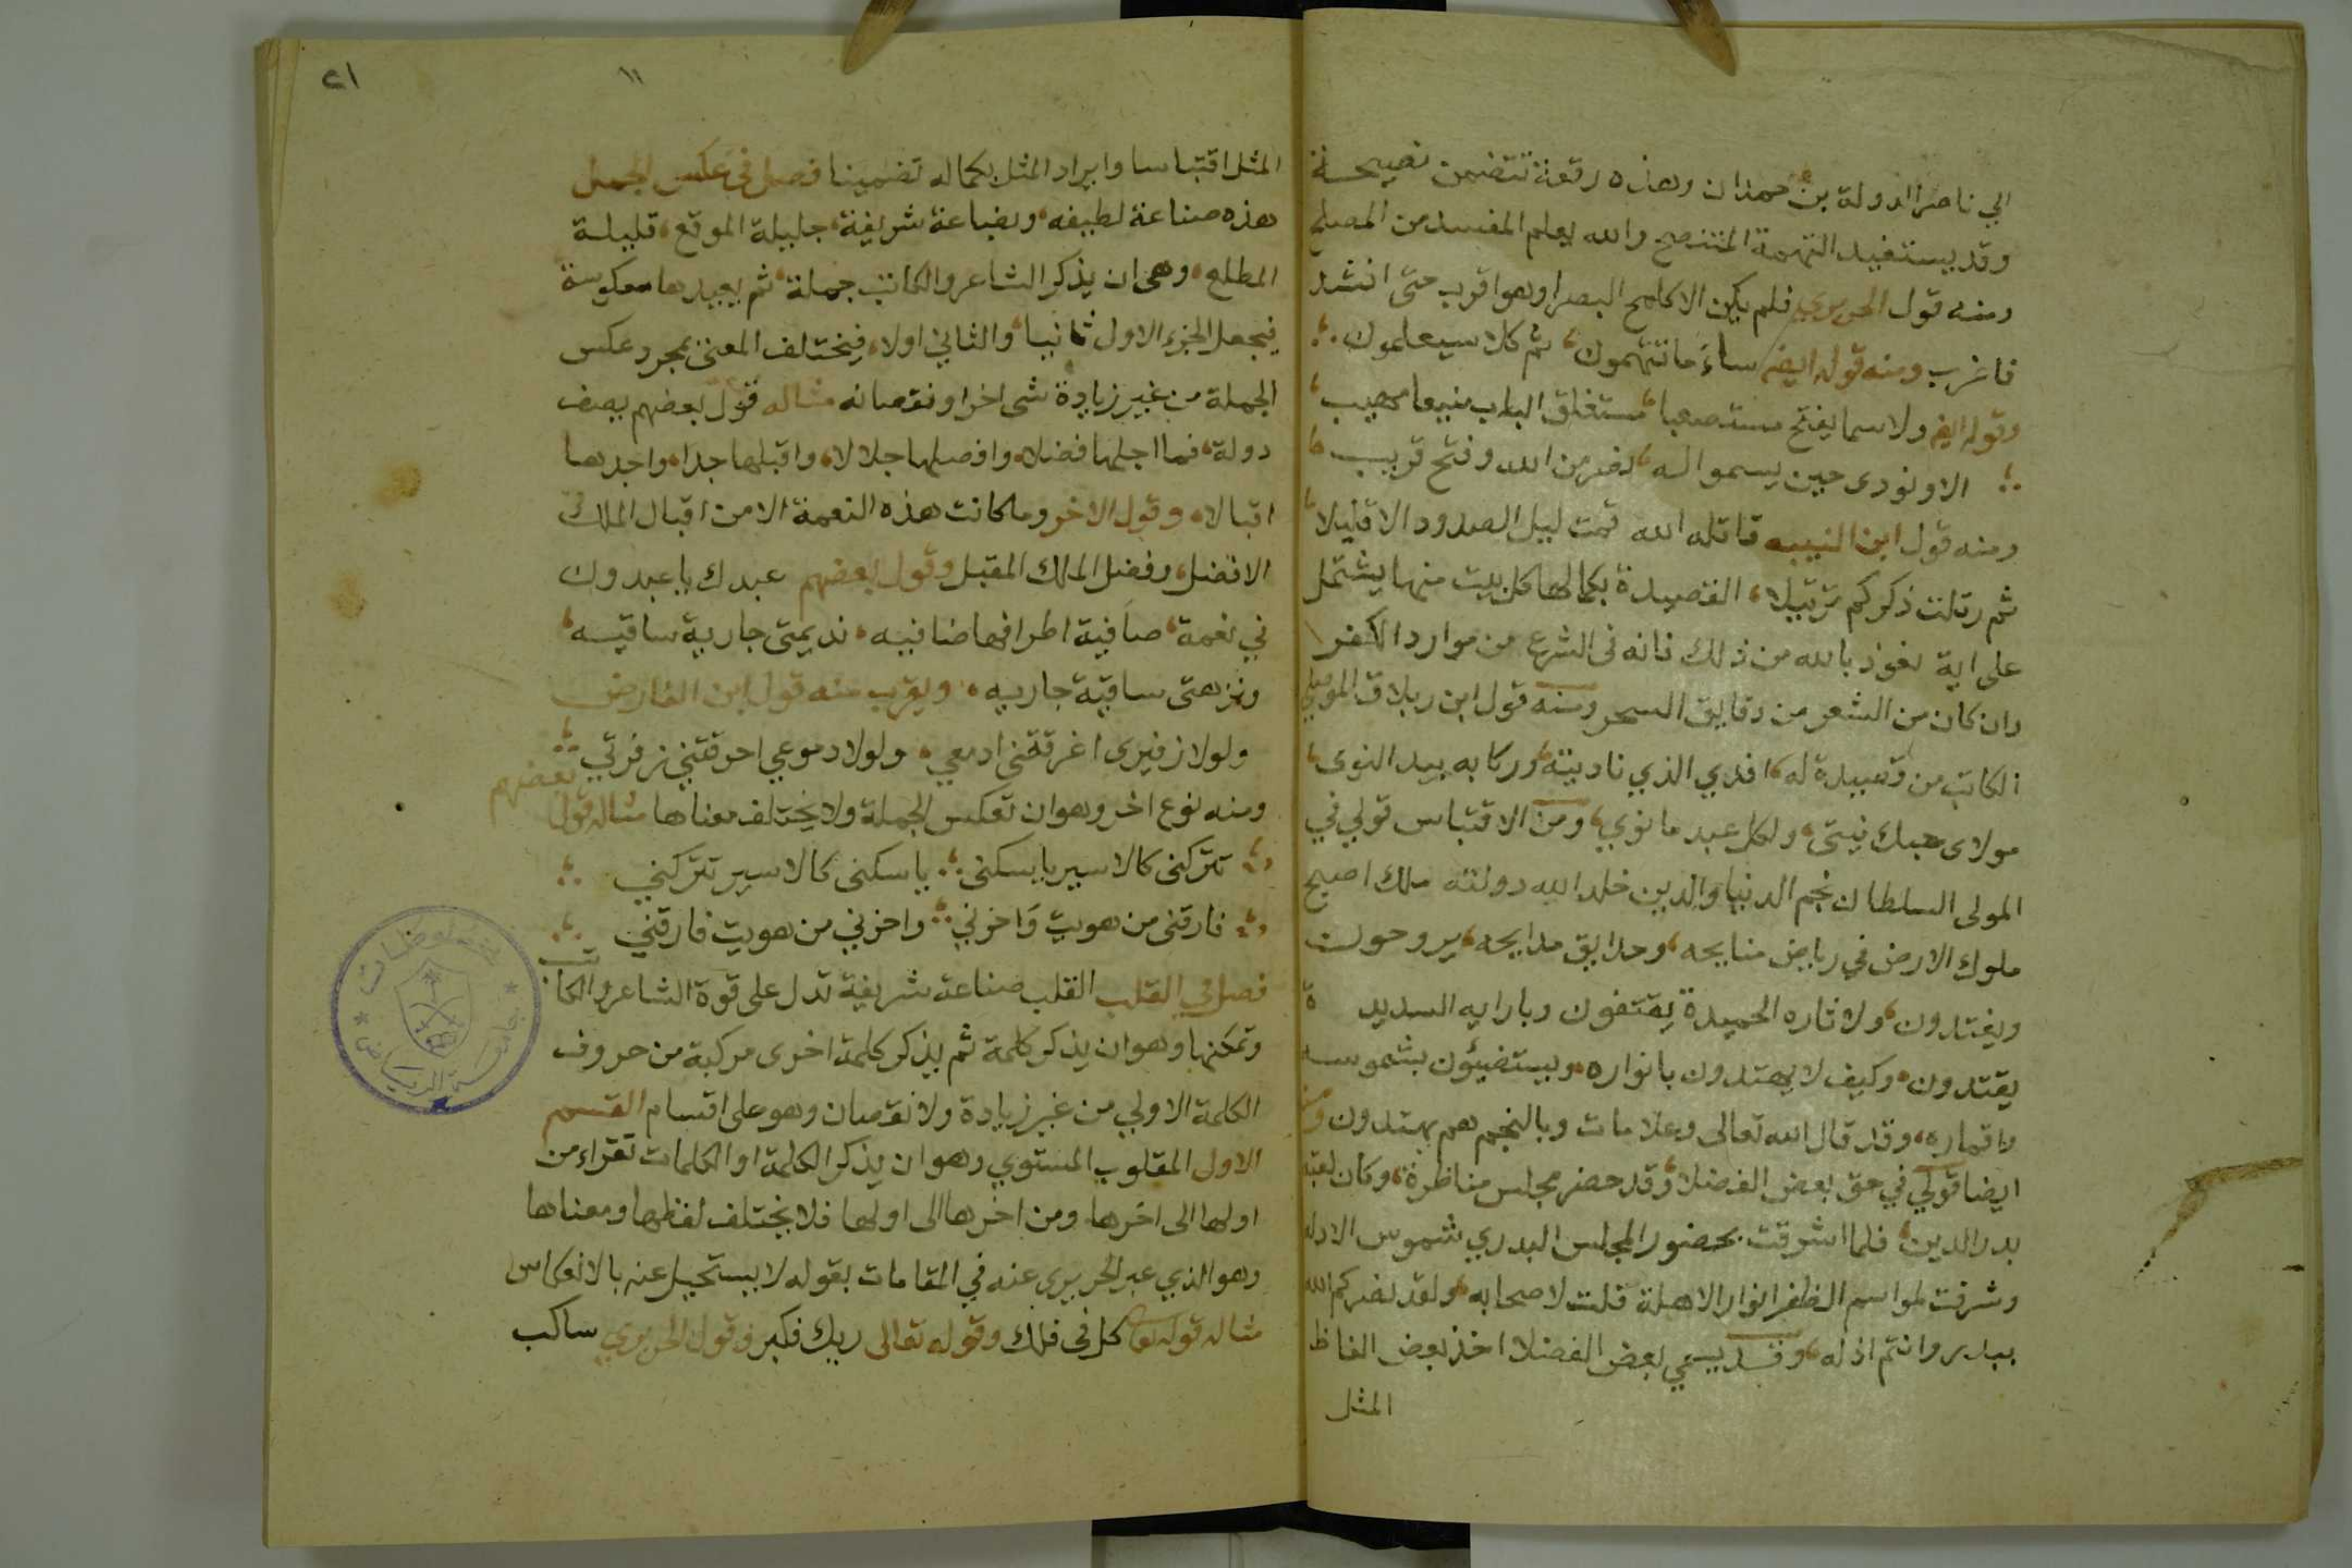 الي ناصر الدولة بن حمدان وهذه رقعة تتضمن نصيحة
وقد يستفيد التهمة المتنصح والله يعلم المفسد من المصلح
ومنه قول الحريري فلم يكن الا كلمح البصر او هو اقرب حتى انشد
فاغرب ومنه قوله ايض ساء ما تتهمون، ثم كلا سيعلمون
وقوله ايض ولا سما يفتح مستصعبا، مستغلق الباب منيعا مهيب،
الا ونودى حين يسمو اله، نصر من الله وفتح قريب
ومنه قول ابن النبيه قاتله الله قمت ليل الصدود الا قليلا،
ثم رتلت ذكركم ترتيلا، القصيدة بكمالها كل بيت منها يشتمل
على اية نعوذ بالله من ذلك فانه فى الشرع من موارد الكفر
وان كان من الشعر من دقايق السحر ومنه قول ابن زبلاق الموصلي
الكاتب من قصيدة له، افدي الذي ناديته، وركابه بيد النوى،
مولاى حبك نيتى، ولكل عبد ما نوي، ومن الاقتباس قولي في
المولى السلطان نجم الدنيا والدين خلد الله دولته ملك اصبح
ملوك الارض في رياض منايحه، وحدايق مدايحه، يروحون
ويغتدون، ولاثاره الحميدة يقتفون وبارايه السديدة
يقتدون، وكيف لا يهتدون بانواره، ويستضيؤن بشموسه
واقماره، وقد قال الله تعالى وعلامات وبالنجم هم يهتدون ومنه
ايضا قولي في حق بعض الفضلا، وقد حضر مجلس مناظرة، وكان لقبه
بدر الدين، فلما اشرقت بحضور المجلس البدري شموس الادله
وشرفت لمواسم الظفر انوار الاهلة قلت لاصحابه، ولقد نصركم الله
ببدر وانتم اذله، وقد يسمي بعض الفضلا اخذ بعض الفاظ
المثل
١١
٢١
المثل اقتباسا وايراد المثل بكماله تضمينا فصل فى عكس الجمل
هذه صناعة لطيفه، وبضاعة شريفة، جليلة الموقع، قليلة
المطلع، وهى ان يذكر الشاعر والكاتب جملة، ثم يعيدها معكوسة
فيجعل الجزء الاول ثانيا، والثاني اولا، فيختلف المعنى بمجرد عكس
الجملة من غير زيادة شى اخر او نقصانه مثاله قول بعضهم يصف
دولة، فما اجلها فضلا، وافضلها جلالا، واقبلها جدا، واجدها
اقبالا، وقول الاخر وما كانت هذه النعمة الا من اقبال الملك
الافضل، وفضل الملك المقبل وقول بعضهم عبدك يا عبدون
في نعمة، صافية اطرافها ضافيه، نديمتى جارية ساقيه،
ونزهتى ساقية جاريه، ويقرب منه قول ابن الفارض
ولولا زفيرى اغرقتنى ادمعي، ولولا دموعي احرقتني زفرتي
ومنه نوع اخر وهو ان تعكس الجملة ولا يختلف معناها مثاله قول بعضهم
تتركنى كالاسير يا سكنى، يا سكنى كالاسير تتركني
فارقنى من هويت وَاحزني، واحزني من هويت فارقني
فصل في القلب القلب صناعة شريفة تدل على قوة الشاعر والكاتب
وتمكنها وهو ان يذكر كلمة ثم يذكر كلمة اخرى مركبة من حروف
الكلمة الاولي من غير زيادة ولا نقصان وهو على اقسام القسم
الاول المقلوب المستوي وهو ان يذكر الكلمة او الكلمات تقراء من
اولها الى اخرها ومن اخرها الى اولها فلا يختلف لفظها ومعناها
وهو الذي عبر الحريرى عنه في المقامات بقوله لا يستحيل عنه بالانعكاس
مثاله قوله تعا كل فى فلك وقوله تعالى ربك فكبر وقول الحريري ساكب